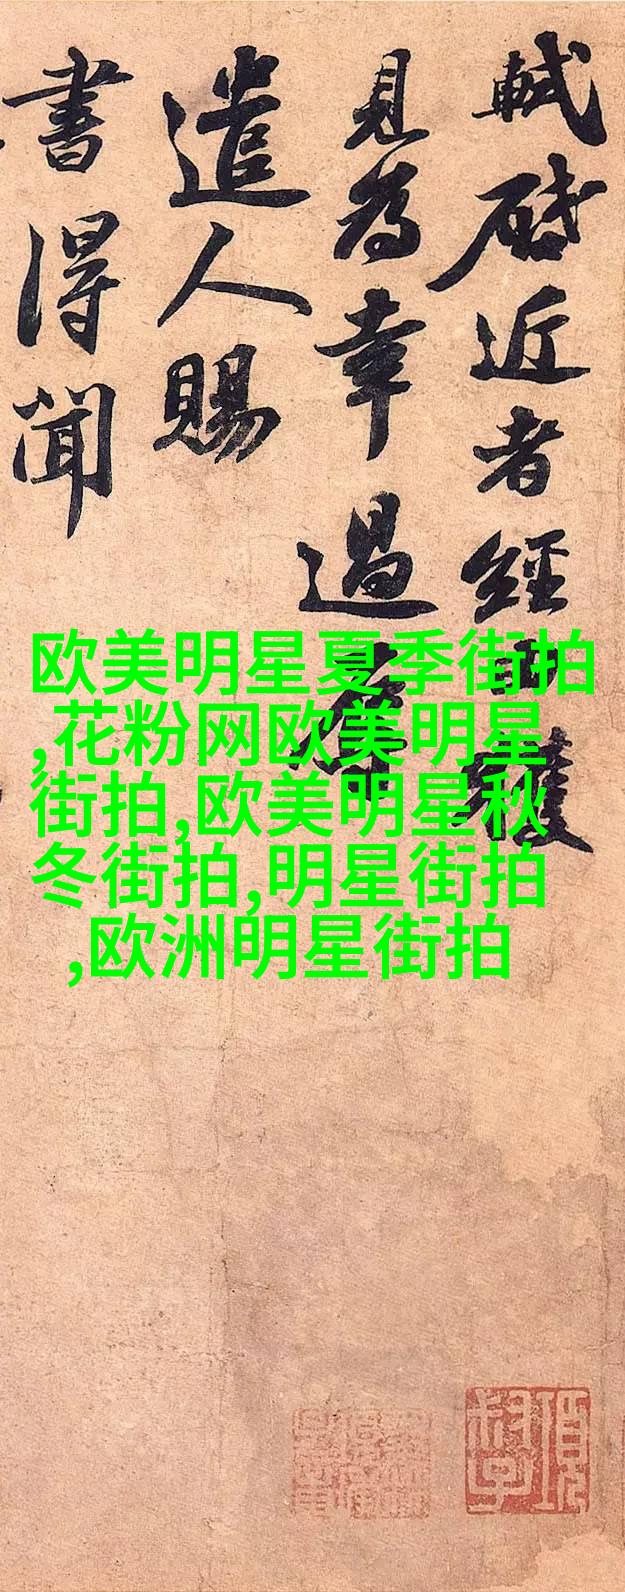 軾啟近者經由獲
見為幸過辱
遣人賜
書得聞
欧美明星夏季街拍
,花粉网欧美明星
街拍,欧美明星秋
冬街拍,明星街拍
,欧洲明星街拍